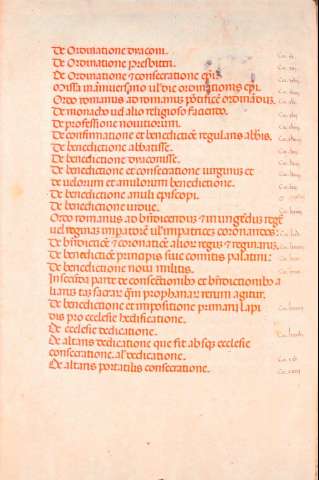 De Ordinatione diaconi.
De Ordinatione presbiteri.
De Ordinatione et consecratione epi.
Missa in anniversario ul die ordinationis epi.
Ordo romanus ad romanum pontificem ordinandum.
De monacho vel alio religioso faciendo.
De professione novitiorum.
De confirmatione et benedictione regularis abbis.
De benedictione abbatisse.
De benedictione diaconisse.
De benedictione et consecratione virginis et
de velorum et anulorum benedictione.
De benedictione anuli episcopi.
De benedictione vidue.
Ordo romanus ad bndicendum et inungendum regem
vel reginam imperatorem ul impatricem coronandos:
De bndictione et coronatione alior regum et reginarum.
De benedictione principis sive comitis palatini:
De benedictione novi militis.
In secunda parte de consecrationibus et bndictionibus a
liarum tam sacrar qm prophanar rerum agitur.
De benedictione et impositione primarii lapi
dis pro ecclesie hedificatione.
De ecclesie dedicatione.
De altaris dedicatione que fit absqz ecclesie
consecratione. al dedicatione.
De altaris portatilis consecratione.